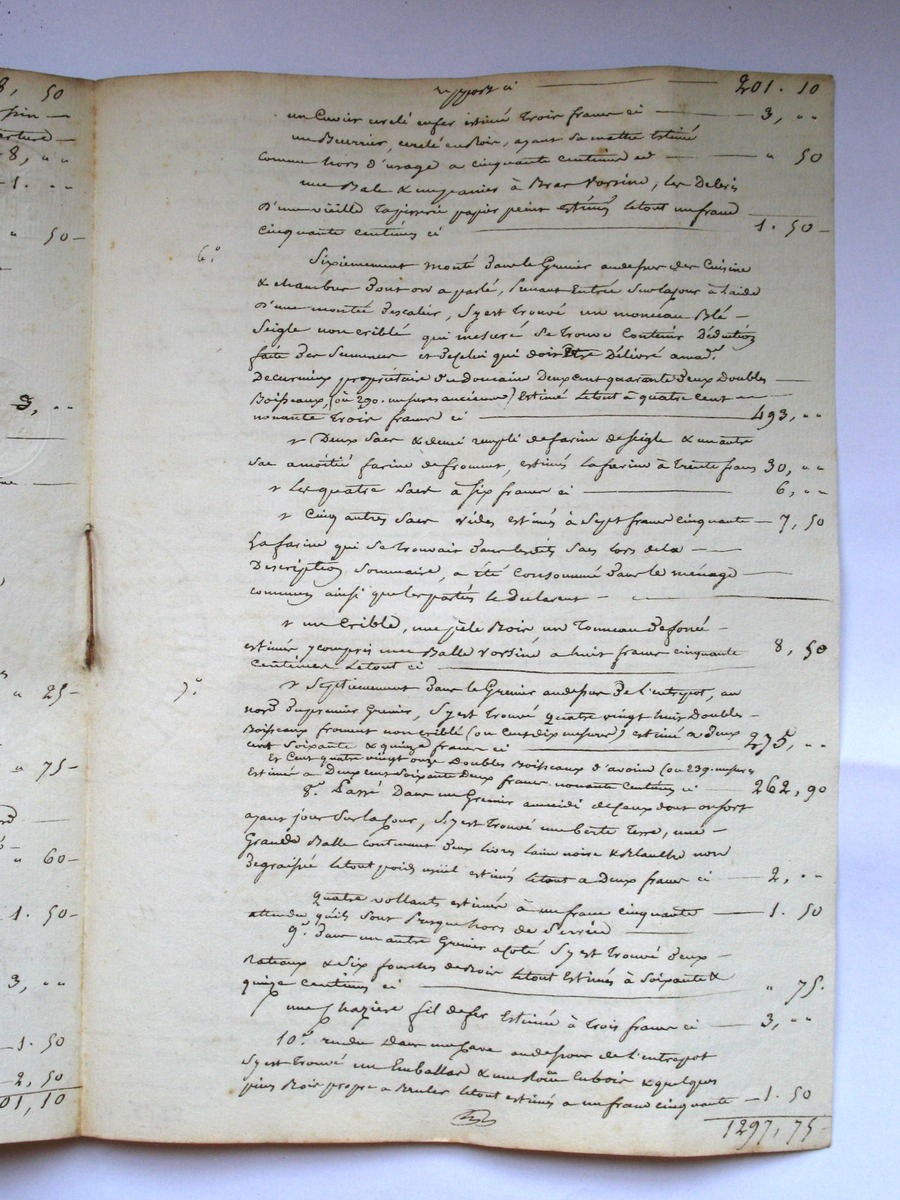 8, 50
pin —
erture —
-8, " "
-1. " "
" 50 -
3, " "
" 25 -
" 75 -
" 60 -
1. 50 -
3, " "
-1. 50
2, 50
01, 10
rapport ci — 201. 10
un Cuvier cerclé en fer estimé trois francs ci — 3, " "
une Beurrier, cerclé en Bois, ayant sa mettre Estimé
comme hors d'usage a cinquante centimes ci — " 50
une Bale & un panier à Bras Vorsine, les Debris
d'une vieille tapisserie papier peint estimés le tout un franc
cinquante centimes ci — 1. 50 -
6.° Sixiemement monté dans le Grenier au dessus des Cuisine
& chambres dont on a parlé, prenant Entrée sur la cour à l'aide
d'une montée d'escalier, s'y est trouvé un monceau Blé -
Seigle non criblé qui mesuré se trouve Contenir Déduction
faite des Semences et de celui qui doit Etre Délivré a mad.e
Decurnieux propriétaire du domaine Deux cent quarante deux Doubles —
Boisseaux, (ou 290. mesures ancienne) Estimé le tout à quatre cent —
nonante trois francs ci — 493, " "
+ Deux Sacs & demi rempli de farine de seigle & un autre
sac a moitié farine de froment, estimés la farine à trente francs 30, " "
+ Les quatre Sacs à six francs ci — 6, " "
+ Cinq autres Sacs vides estimés à Sept francs cinquante — 7, 50
La farine qui se trouvait dans lesdits Sacs lors de la —
Description Sommaire, a été Consommé dans le ménage —
commun ainsi que les parties le declarent —
+ un Crible, une pèle Bois un Tonneau defoncé -
estimés, y compris une Balle Vorsine a huit francs cinquante 8, 50
Centimes le tout ci —
7.° + Septiemement dans le Grenier au dessus de l'entrepot, au
nord du premier Grenier, s'y est trouvé quatre vingt huit Doubles -
Boisseaux froment non criblé (ou Cent dix mesures) estimé a deux
cent Soixante & quinze francs ci — 275, " "
Et Cent quatre vingt onze Doubles Boisseaux d'avoine (ou 239. mesures
Estimé a Deux cent Soixante Deux francs nonante Centimes ci — 262, 90
8.° Passé Dans un Grenier au midi de ceux dont on sort
ayant jour sur la Cour, s'y est trouvé une berte terre, une -
Grande Balle contenant deux livres laine noire & blanche non
degraissée le tout poids usuel estimés le tout a Deux francs ci — 2, " "
quatre vollants estimés à un franc cinquante — 1. 50
attendu qu'ils sont presque hors de service —
9.° dans un autre Grenier a coté s'y est trouvé deux -
Rateaux & Six fourches de Bois le tout Estimés à Soixante &
quinze Centimes ci — " 75.
une fil de fer Estimée à Trois francs ci — 3, " "
10.° rendu Dans une cave au dessous de l'entrepot
s'y est trouvé un Emballar & une en bois & quelques
pieces Bois propre a Bruler le tout estimés a un franc cinquante — 1. 50
1297, 75 -